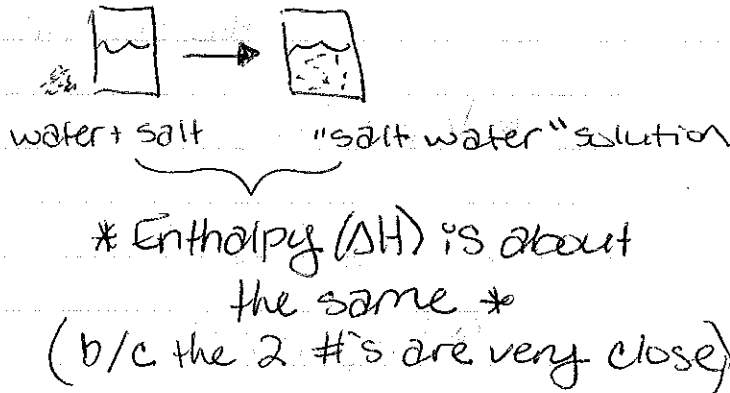 water + salt "salt water" solution
* Enthalpy (ΔH) is about
the same *
(b/c the 2 #'s are very close)